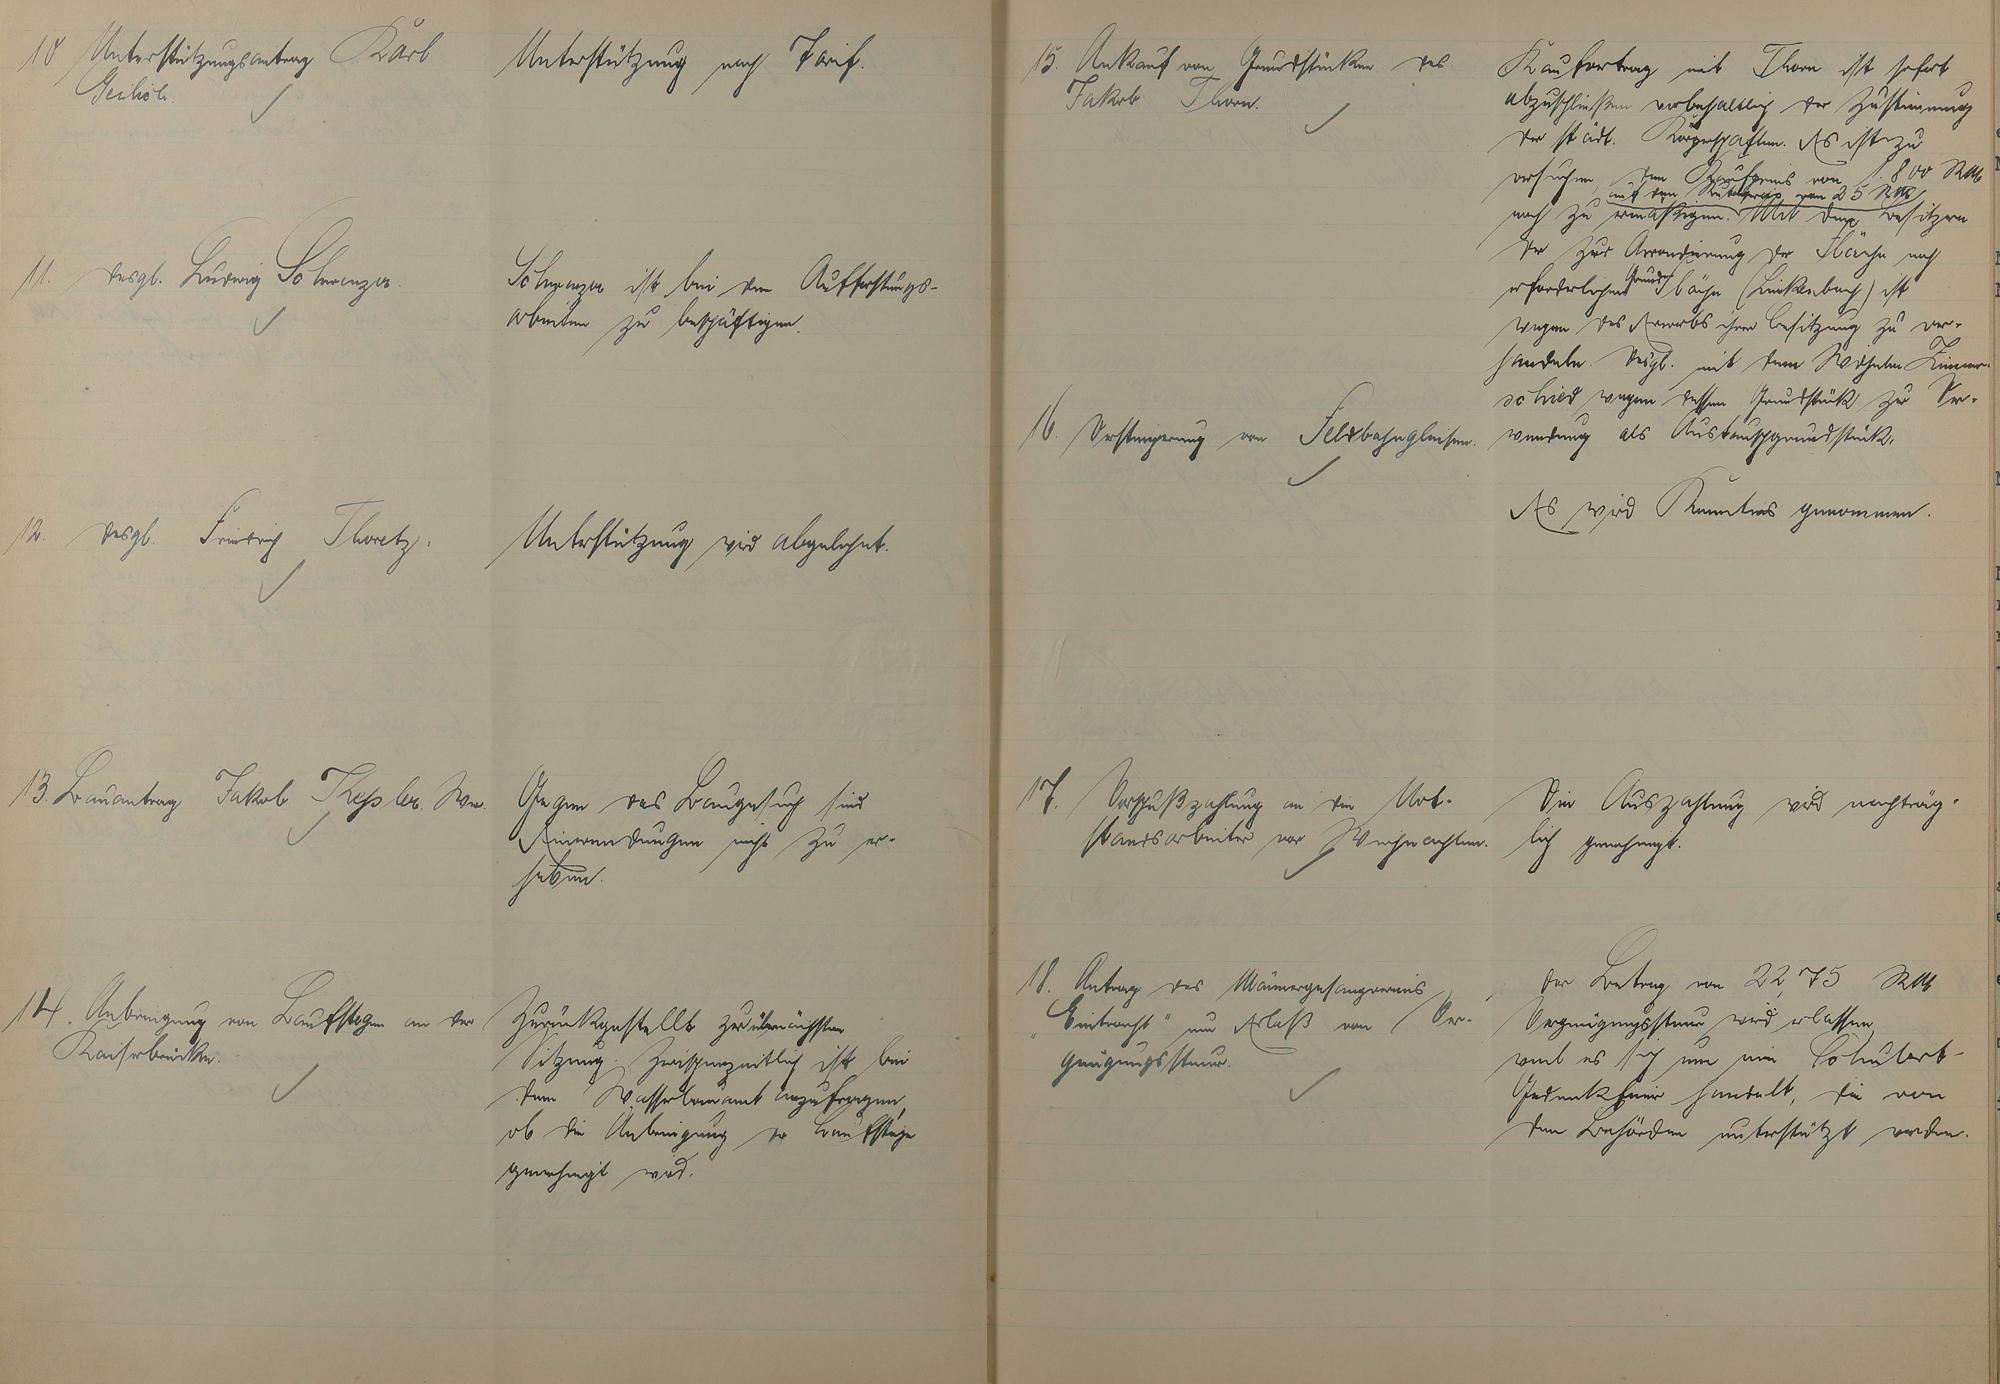 10 Unterstützungsantrag Karl
Unterstützung nach Tarif.
11. desgl. Ludwig Schwenzer.
Schwenzer ist bei den Aufforstungs-
arbeiten zu beschäftigen.
12. desgl. Friedrich Thoretz.
Unterstützung wird abgelehnt.
13. Bauantrag Jakob Kepler. Ww.
Gegen das Baugesuch sind
Einwendungen nicht zu er-
heben.
14. Anbringung von Laufstegen an der
Kaiserbrücke.
Zurückgestellt zur übernächsten
Sitzung. Zwischenzeitlich ist bei
dem Wasserbauamt anzufragen,
ob die Anbringung der Laufstege
genehmigt wird.
15. Ankauf von Grundstücken des
Jakob Thorn.
Kaufvertrag mit Thorn ist sofort
abzuschließen vorbehaltlich der Zustimmung
der städt. Körperschaften. Es ist zu
versuchen, den Kaufpreis von 1.800 RM
auf den von 25 RM
noch zu ermäßigen. Mit den Besitzern
der zur Arrondierung der Fläche noch
erforderlichen Grundfläche (Linkenbach) ist
wegen des Erwerbs ihrer Besitzung zu ver-
handeln. Desgl. mit dem Wilhelm Zimmer-
schied wegen dessen Grundstück zur Ver-
wendung als Austauschgrundstück.
16. Versteigerung von Feldbahngleisen.
Es wird Kenntnis genommen.
17. Vorschußzahlung an die Not-
standsarbeiter vor Weihnachten.
Die Auszahlung wird nachträg-
lich genehmigt.
18. Antrag des Männergesangvereins
"Eintracht" um Erlaß von Ver-
gnügungssteuer.
Der Betrag von 22,75 RM
Vergnügungssteuer wird erlassen,
weil es sich um eine Schubert-
Gedenkfeier handelt, die von
den Behörden unterstützt werden.